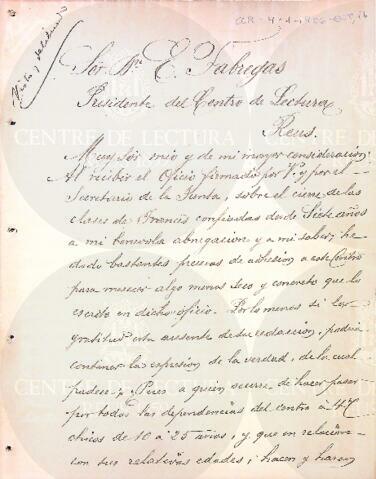 Sor Dn. E. Fabregas
Presidente del Centro de Lectura
Reus.
Muy Sor mio y de mi mayor consideracion:
Al recibir el Oficio firmado por V. y por el
Secretario de la Junta, sobre el cierre de las
clases de Francés confiadas desde Siete años
a mi benevola abnegacion y a mi saber, he
dado bastantes pruevas de adhesion a este Centro
para merecer algo menos seco y concreto que lo
escrito en dicho oficio. Por lo menos si la
gratitud esta ausente de su redaccion, podria
contener la espresion de la verdad, de la cual
Pues a quien ocurre de hacer pasar
por todas las dependencias del centro à 47
chicos de 10 a 25 años, y que en relacion
con sus relativas edades, hacen y haran
CENTRE DE LECTURA